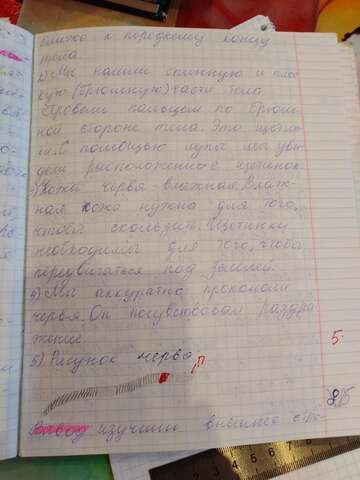 ближе к переднему концу
тела.
2) Мы нашли спинную и плос
кую (брюшную) части тела
Провели пальцем по брюш
ной стороне тела. Это щетин
ки. С помощью лупы мы уви
дели расположение щетинок.
3) Кожа червя влажная. Влаж-
ная кожа нужна для того,
чтобы скользить. Щетинки
необходимы для того, чтобы
передвигаться под землёй.
4) Мы аккуратно прокололи
червя. Он почувствовал раздра
жение.
5
5) Рисунок червя
Вывод изучили внешнее стро-
5 6 7 8 9 10